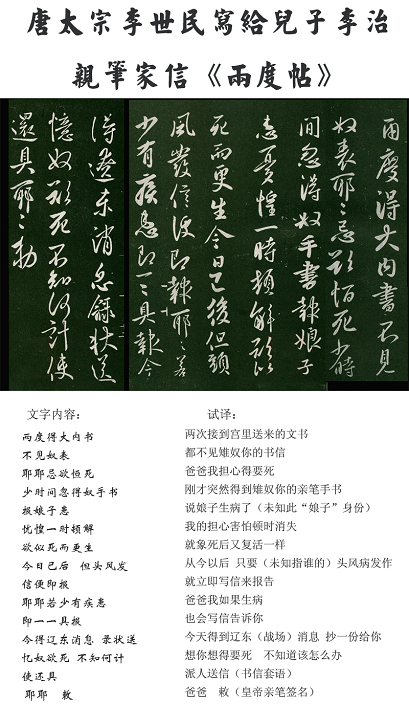 唐太宗李世民寫給兒子李治
親筆家信《兩度帖》
兩度得大內書不見
奴表耶々忌欲恒死少時
間忽得奴手書報娘子
患憂惶一時頓解欲似
死而更生今日已後但頭
風發信便即報耶々若
少有疾患即一々具報今
得遼東消息錄狀送
憶奴欲死不知何計使
還具耶々勅
文字内容： 试译：
两度得大内书 两次接到宫里送来的文书
不见奴表 都不见雉奴你的书信
耶耶忌欲恒死 爸爸我担心得要死
少时间忽得奴手书 刚才突然得到雉奴你的亲笔手书
报娘子患 说娘子生病了（未知此“娘子”身份）
忧惶一时顿解 我的担心害怕顿时消失
欲似死而更生 就象死后又复活一样
今日已后 但头风发 从今以后 只要（未知指谁的）头风病发作
信便即报 就立即写信来报告
耶耶若少有疾患 爸爸我如果生病
即一一具报 也会写信告诉你
今得辽东消息 录状送 今天得到辽东（战场）消息 抄一份给你
忆奴欲死 不知何计 想你想得要死 不知道该怎么办
使还具 派人送信（书信套语）
耶耶 敕 爸爸 敕（皇帝亲笔签名）